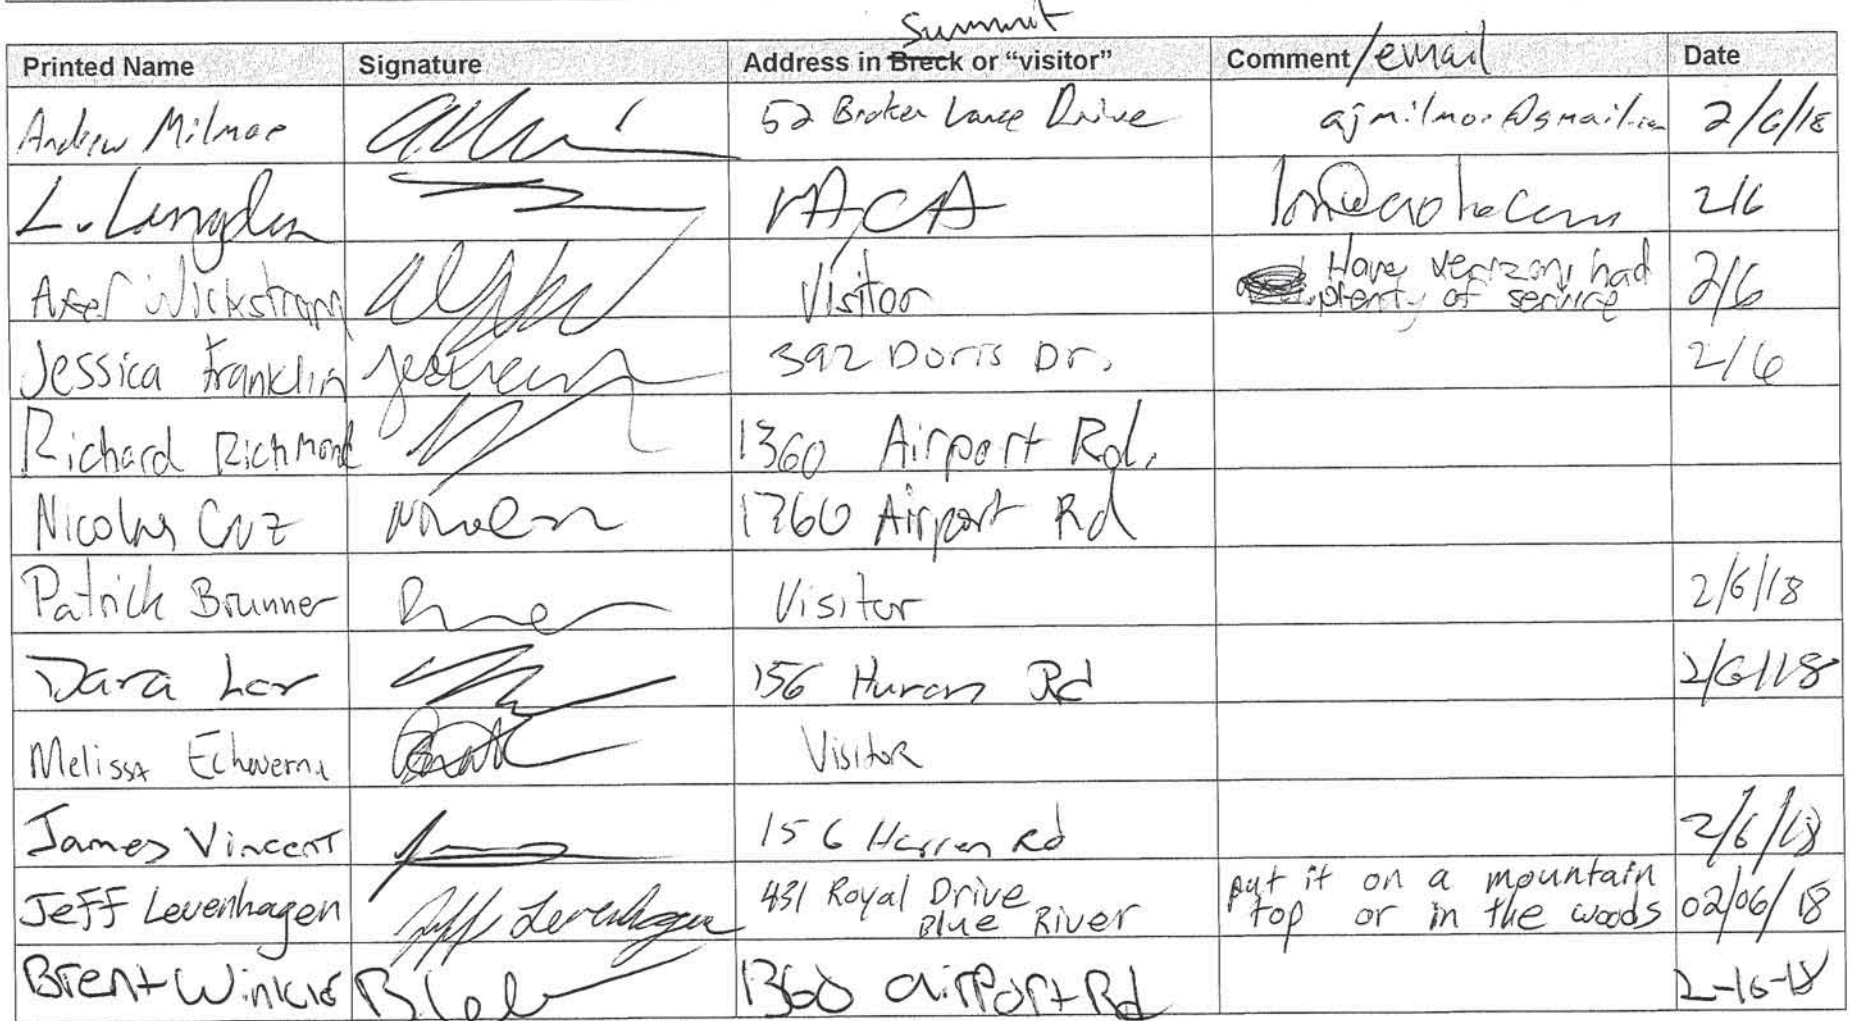 Summit
Printed Name Signature Address in Breck or "visitor" Comment /email Date
Andrew Milmoe 52 Broken Lance Drive 2/6/18
L. Langden 2/6
Axel Wickstrom Visitor Have verizon, had 2/6
plenty of service
Jessica Franklin 392 Doris Dr. 2/6
Richard Richmond 1360 Airport Rd.
Nicolas Cruz 1760 Airport Rd
Patrick Brunner Visitor 2/6/18
Dara Lor 156 Huron Rd 2/6/18
Melissa Echeverria Visitor
James Vincent 156 Rd 2/6/18
Jeff Levenhagen Jeff Levenhagen 431 Royal Drive put it on a mountain 02/06/18
Blue River top or in the woods
Brent 1360 airport Rd 2-16-18